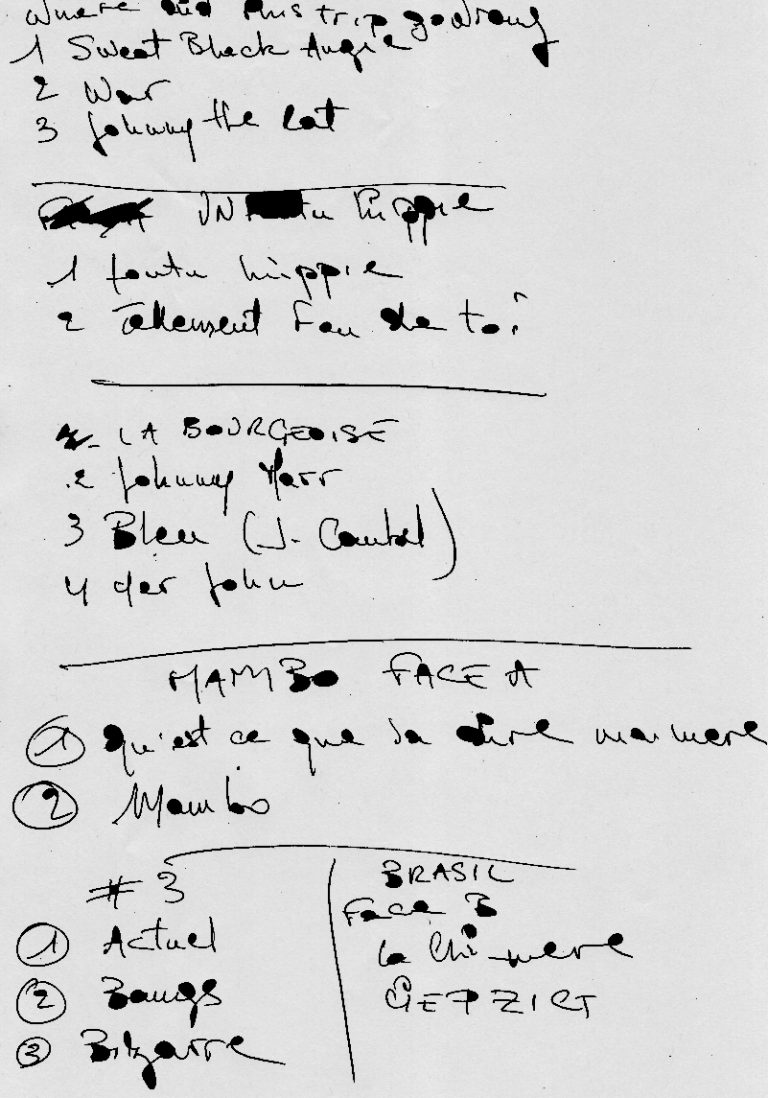 where did this trip go wrong
1 Sweet Black Angie
2 War
3 Johnny the cat
UN hippie
1 foutu hippie
2 Tellement Fou de toi
LA BOURGEOISE
2 Johnny Marr
3 Bleu (J.
4 John
MAMBO FACE A
1 qu'est ce que va dire ma mere
2 Mambo
# 3
1 Actuel
2 Bangs
3 Bizarre
BRASIL
Face B
la Chimere